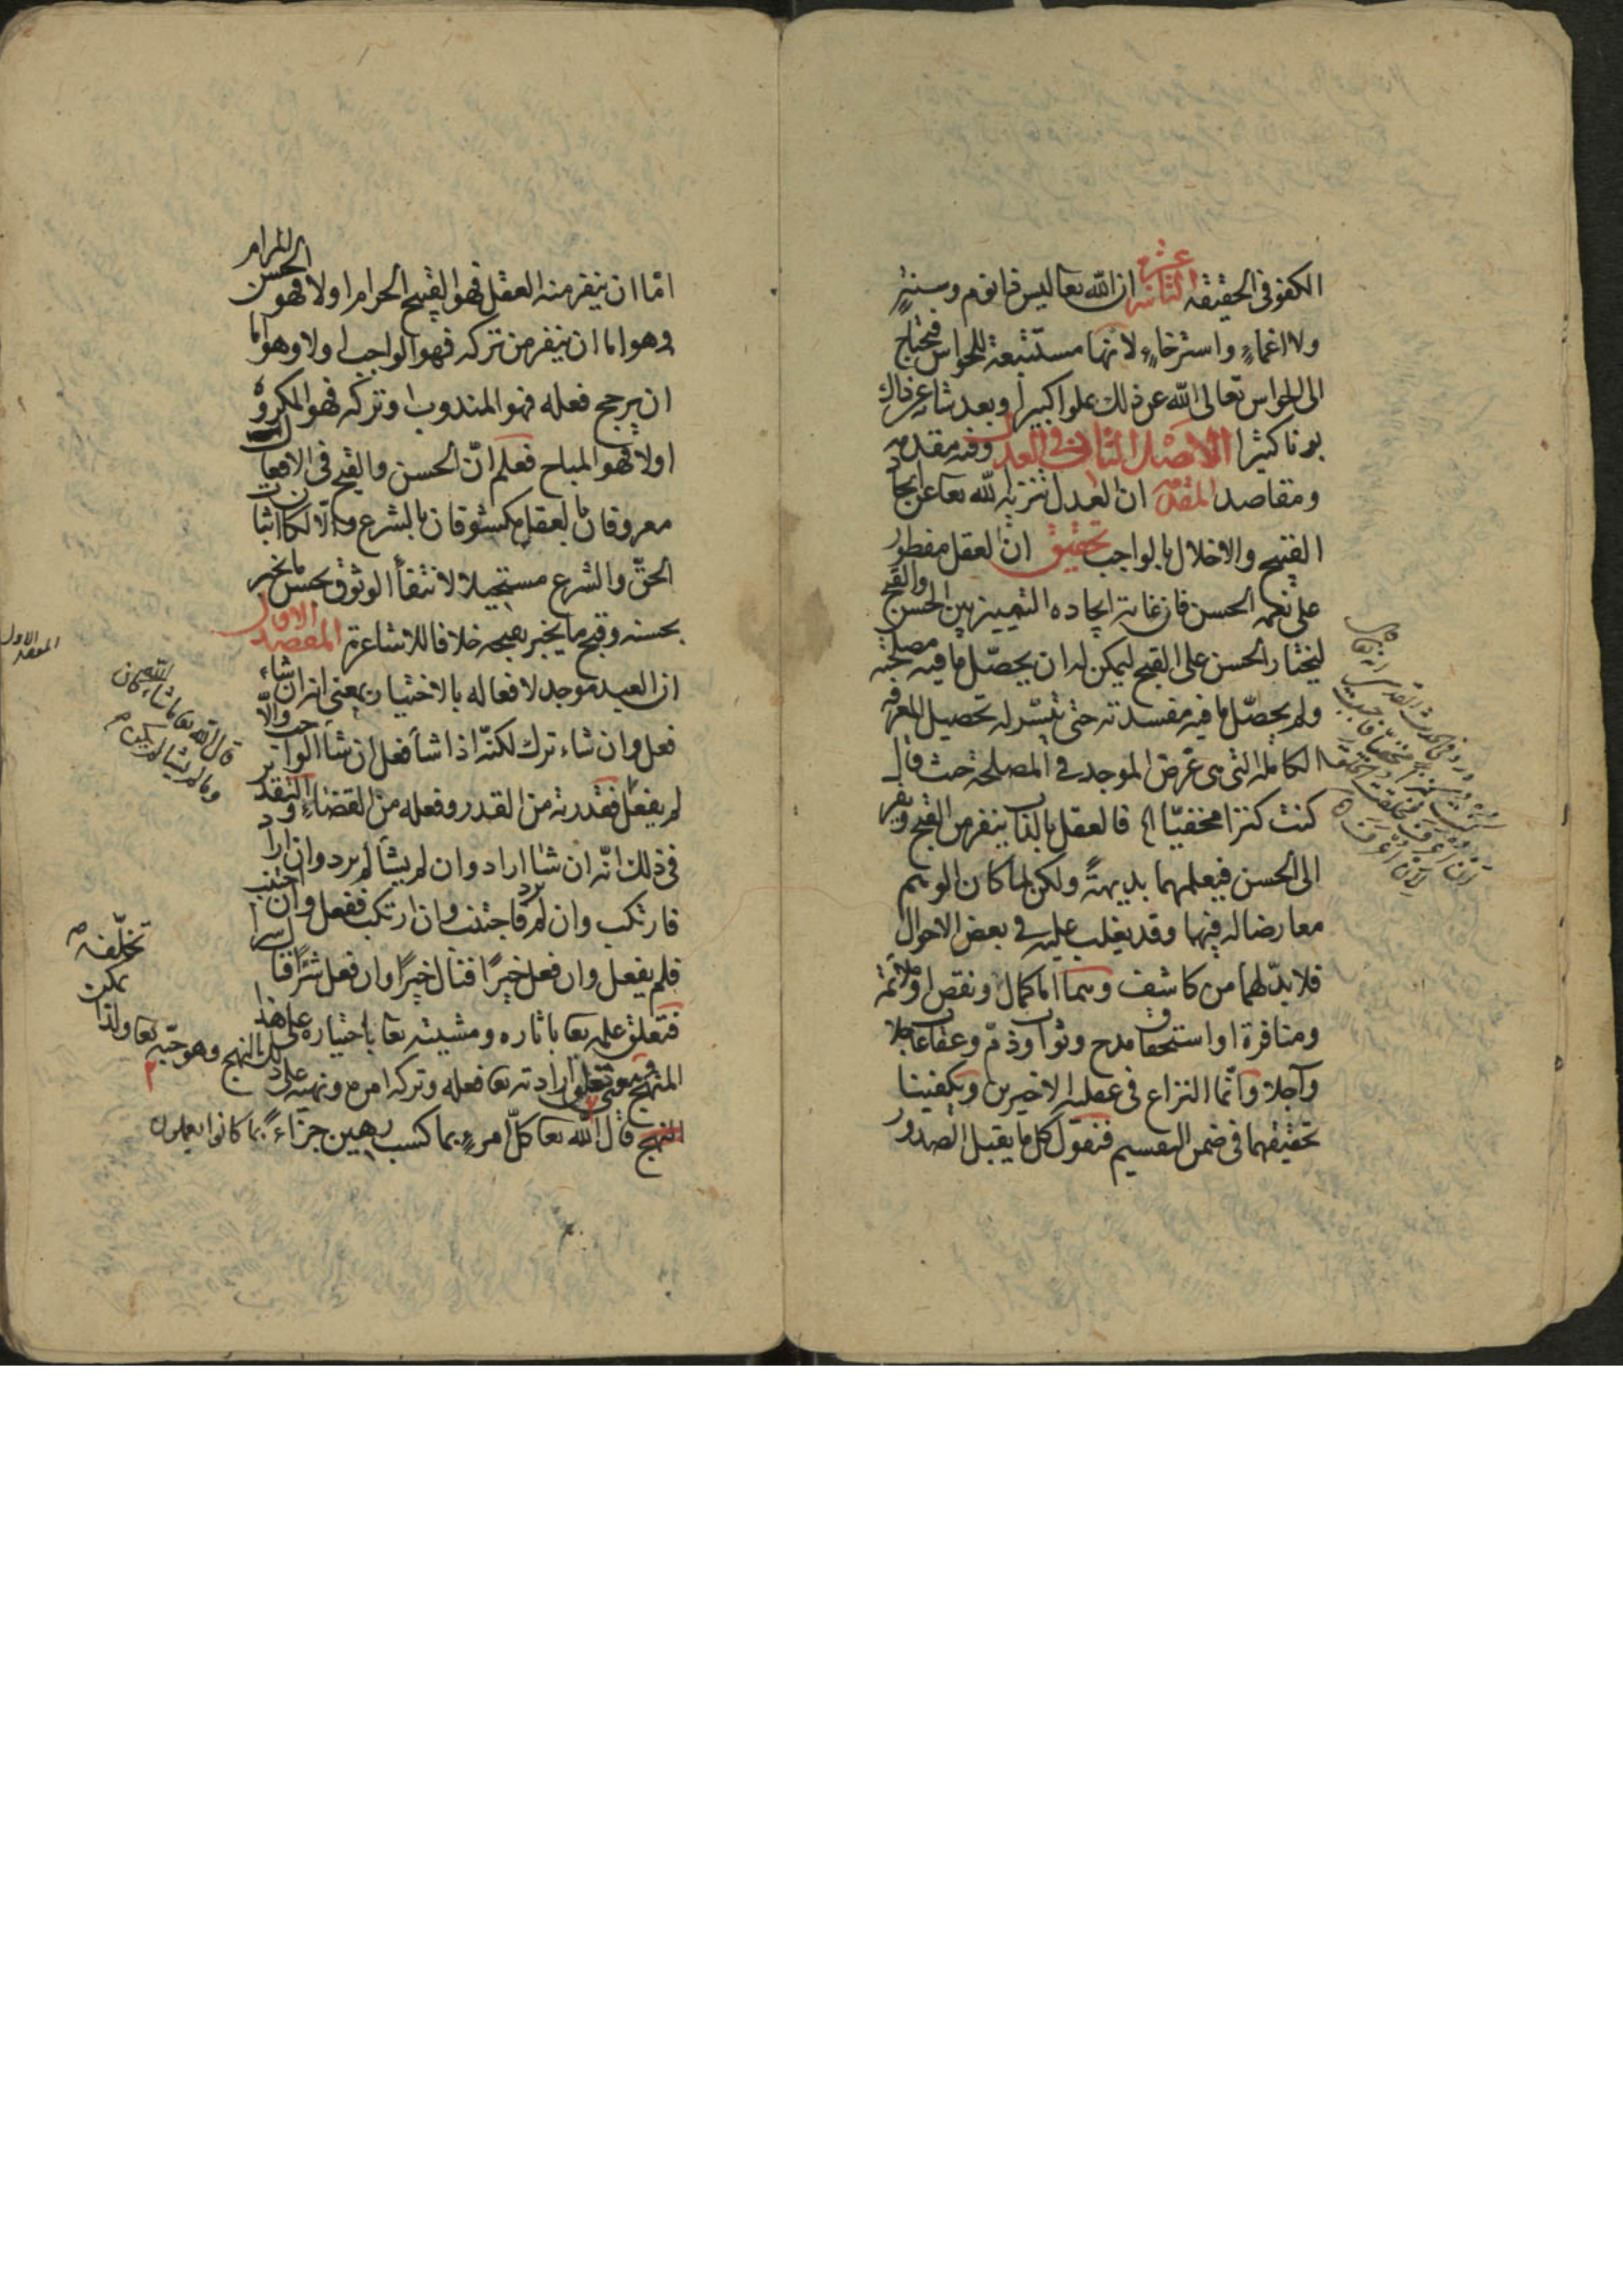 الكفو فى الحقيقة الثانية عشر ان الله تعا ليس ذا نوم وسنة
ولا اغماء واسترخاء لانها مستتبعة للحواس فيحتاج
الى الحواس تعالى الله عن ذلك علوا كبيرا وبعد شاعر ذاك
بونا كثيرا الاصل الثانى فى العدل وفيه مقدمة
ومقاصد المقدمة ان العدل تنزيه الله تعا عن ايجاد
القبيح والاخلال بالواجب تحقيق ان العقل مفطور
على نعمة الحسن فان غاية ايجاده التمييز بين الحسن والقبح
ليختار الحسن على القبح ليمكن له ان يحصّل ما فيه مصلحته
ولم يحصّل ما فيه مفسدته حتى تيسّر له تحصيل المعرفة
الكاملة التى هى غرض الموجد فى المصلحة حيث قال
كنت كنزا مخفيّا الخ فالعقل بالذات ينفر من القبح ويفر
الى الحسن فيعلمهما بديهةً ولكن لما كان الوهم
معارضا له فيهما وقد يغلب عليه فى بعض الاحوال
فلا بدّ لهما من كاشف وهما اما كمال ونقص او ملائمة
ومنافرة او استحقاق مدح وثواب وذمّ وعقاب عاجلا
وآجلا وانّما النزاع فى عقلية الاخيرين ويكفينا
تحقيقهما فى ضمن التقسيم فنقول كل ما يقبل الصدور
امّا ان ينفر منه العقل فهو القبيح الحرام اولا فهو الحسن
وهو اما ان ينفر من تركه فهو الواجب اولا وهو اما
ان يرجح فعله فهو المندوب او تركه فهو المكروه
اولا فهو المباح فعلم انّ الحسن والقبح فى الافعال
معروفان بالعقل مكشوفان بالشرع والّا لكان اثبات
الحقّ والشرع مستحيلا لانتفاء الوثوق بحسن ما يخبر
بحسنه وقبح ما يخبر بقبحه خلافا للاشاعرة المقصد الاول
ان العبد موجد لافعاله بالاختيار بمعنى انه ان شاء
فعل وان شاء ترك لكنّه اذا شاء فعل ان شاء الواجب والّا
لم يفعل فقدرته من القدر وفعله من القضاء والتقدير
فى ذلك انّه ان شاء اراد وان لم يشأ لم يرد وان اراد
فارتكب وان لم يرد فاجتنب وان ارتكب ففعل وان اجتنب
فلم يفعل وان فعل خيرًا فنال خيرًا وان فعل شرًّا فنال شرا
فتعلق علمه تعا باثاره ومشيته تعا باختياره على هذا
المنهج وتعلق ارادته تعا فعله وتركه امره ونهيه على ذلك النهج وهو حجّته تعا ولذا
يمكن
تخلّفه
قال الله تعا كلّ امرء بما كسب رهين جزاءً بما كانوا يعملون
المقصد الاول
قال الله تعا ما شاء الله كان
وما لم يشا لم يكن